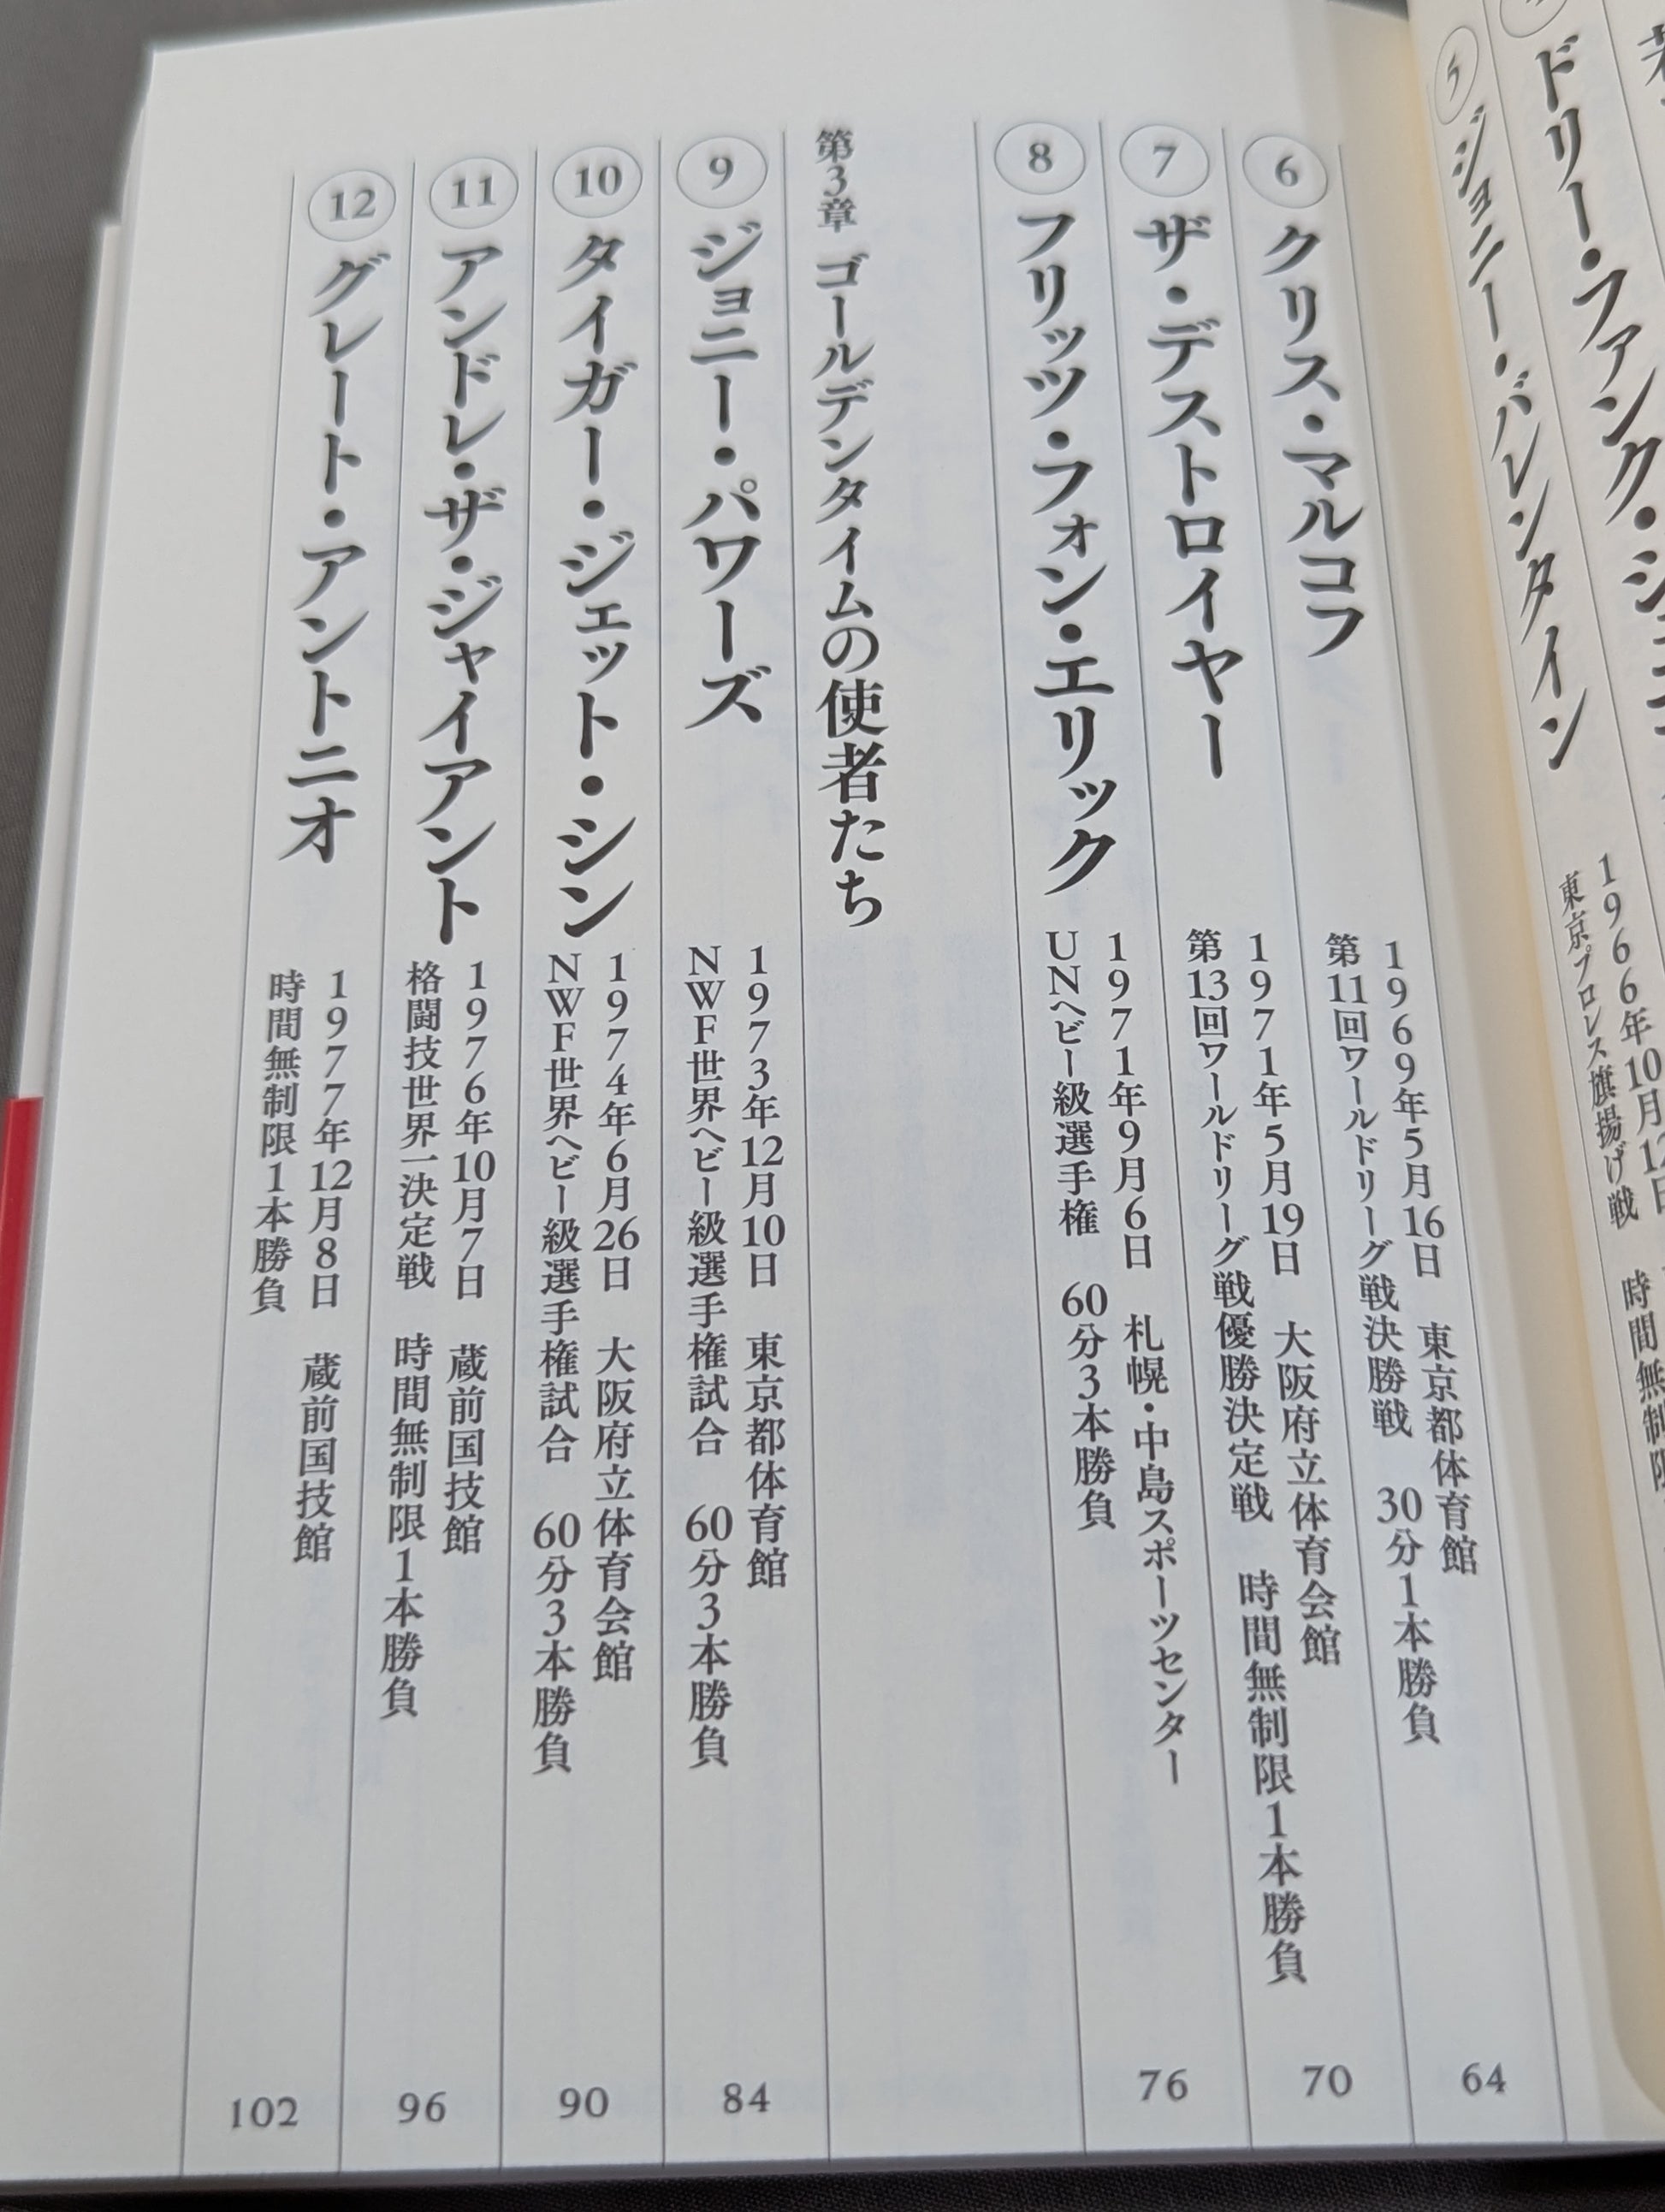 ドリー・ファンク・
⑤ ジョニー・バレンタイン
1966年10月12日
東京プロレス旗揚げ戦 時間無制限
⑥ クリス・マルコフ
1969年5月16日 東京都体育館
第11回ワールドリーグ戦決勝戦 30分1本勝負
64
⑦ ザ・デストロイヤー
1971年5月19日 大阪府立体育会館
第13回ワールドリーグ戦優勝決定戦 時間無制限1本勝負
70
⑧ フリッツ・フォン・エリック
1971年9月6日 札幌・中島スポーツセンター
UNヘビー級選手権 60分3本勝負
76
第3章 ゴールデンタイムの使者たち
⑨ ジョニー・パワーズ
1973年12月10日 東京都体育館
NWF世界ヘビー級選手権試合 60分3本勝負
84
⑩ タイガー・ジェット・シン
1974年6月26日 大阪府立体育会館
NWF世界ヘビー級選手権試合 60分3本勝負
90
⑪ アンドレ・ザ・ジャイアント
1976年10月7日 蔵前国技館
格闘技世界一決定戦 時間無制限1本勝負
96
⑫ グレート・アントニオ
1977年12月8日 蔵前国技館
時間無制限1本勝負
102